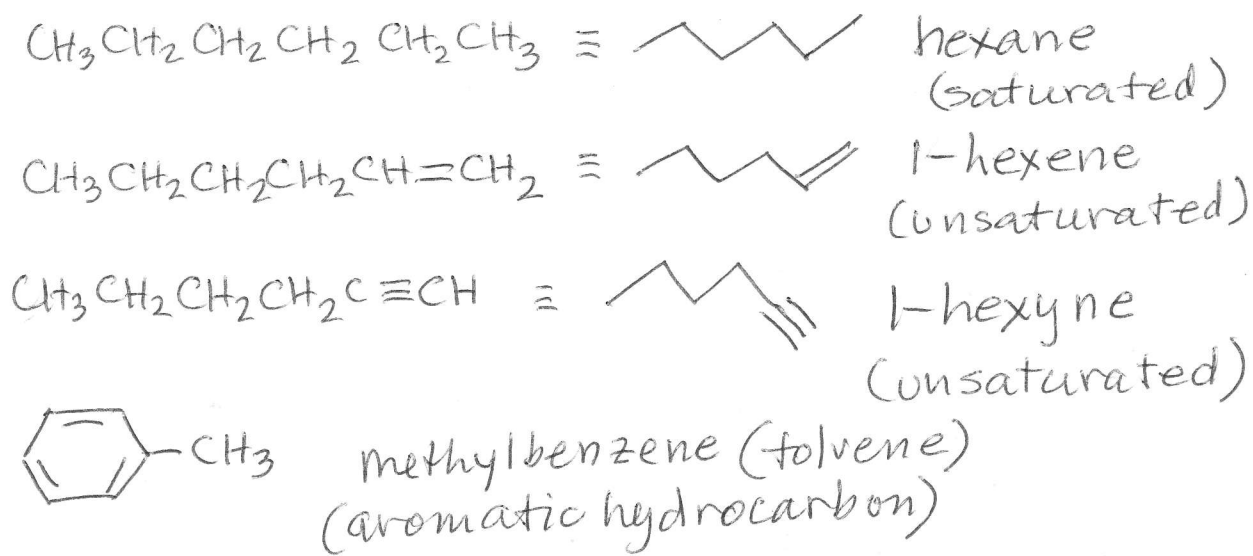 CH₃CH₂CH₂CH₂CH₂CH₃ ≡ hexane
(saturated)
CH₃CH₂CH₂CH₂CH=CH₂ ≡ 1-hexene
(unsaturated)
CH₃CH₂CH₂CH₂C≡CH ≡ 1-hexyne
(unsaturated)
-CH₃ methylbenzene (toluene)
(aromatic hydrocarbon)